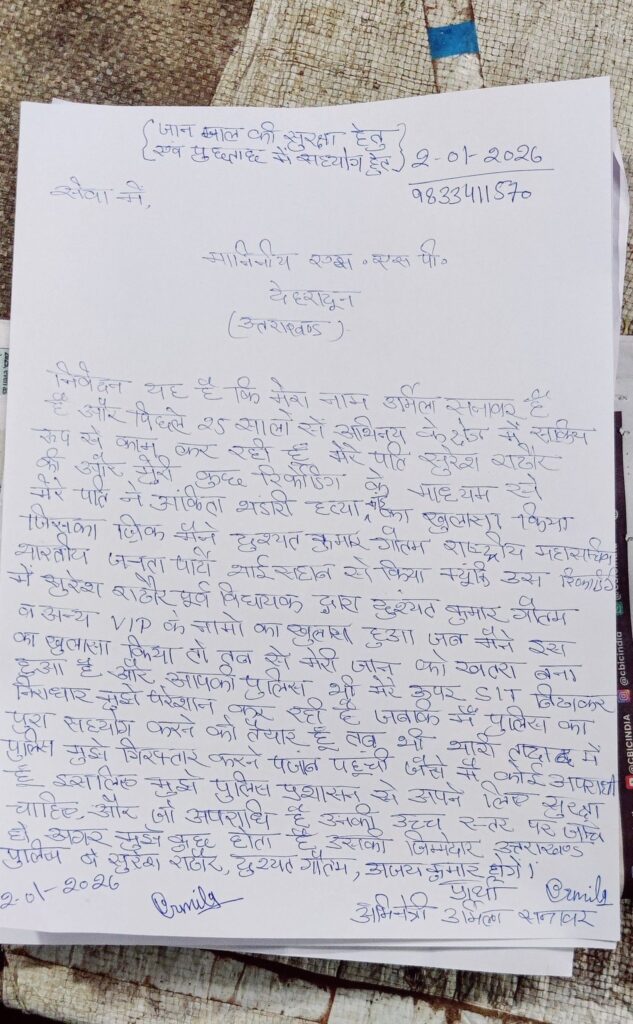 {जान माल की सुरक्षा हेतु
एवं पुछताछ में सहयोग हेतु} 2-01-2026
9833411570
सेवा में,
माननिय एस. एस पी.
देहरादून
(उत्तराखण्ड)
निवेदन यह है कि मेरा नाम उर्मिला सनावर है
है और पिछले 25 सालों से अभिनय के क्षेत्र में सक्रिय
रूप से काम कर रही हूँ मेरे पति सुरेश राठौर
की और मेरी कुछ रिकॉर्डिंग के माध्यम से
मेरे पति ने अंकिता भंडारी हत्या का खुलासा किया
जिसका जिक्र मैंने दुष्यंत कुमार गौतम राष्ट्रीय महासचिव
भारतीय जनता पार्टी भाई साहब से किया क्यूंकि उस रिकॉर्डिंग
में सुरेश राठौर पूर्व विधायक द्वारा दुष्यंत कुमार गौतम
व अन्य VIP के नामो का खुलासा हुआ जब मैंने इस
का खुलासा किया तो तब से मेरी जान को खतरा बना
हुआ है और आपकी पुलिस भी मेरे ऊपर SIT बिठाकर
निराधार मुझे परेशान कर रही है जबकि मैं पुलिस का
पुरा सहयोग करने को तैयार हूँ तब भी भारी तादाद में
पुलिस मुझे गिरफ्तार करने पहूची जैसे मैं कोई अपराधी
हूँ इसलिए मुझे पुलिस प्रशासन से अपने लिए सुरक्षा
चाहिए, और जो अपराधि है उनकी उच्च स्तर पर जाँच
हो अगर मुझे कुछ होता है उसकी जिम्मेदार उत्तराखण्ड
पुलिस व सुरेश राठौर, दुष्यंत गौतम, अजय कुमार होंगे।
प्रार्थी
2-01-2026 Urmila Urmila
अभिनेत्री उर्मिला सनावर
@cbicindia
@CBICINDIA